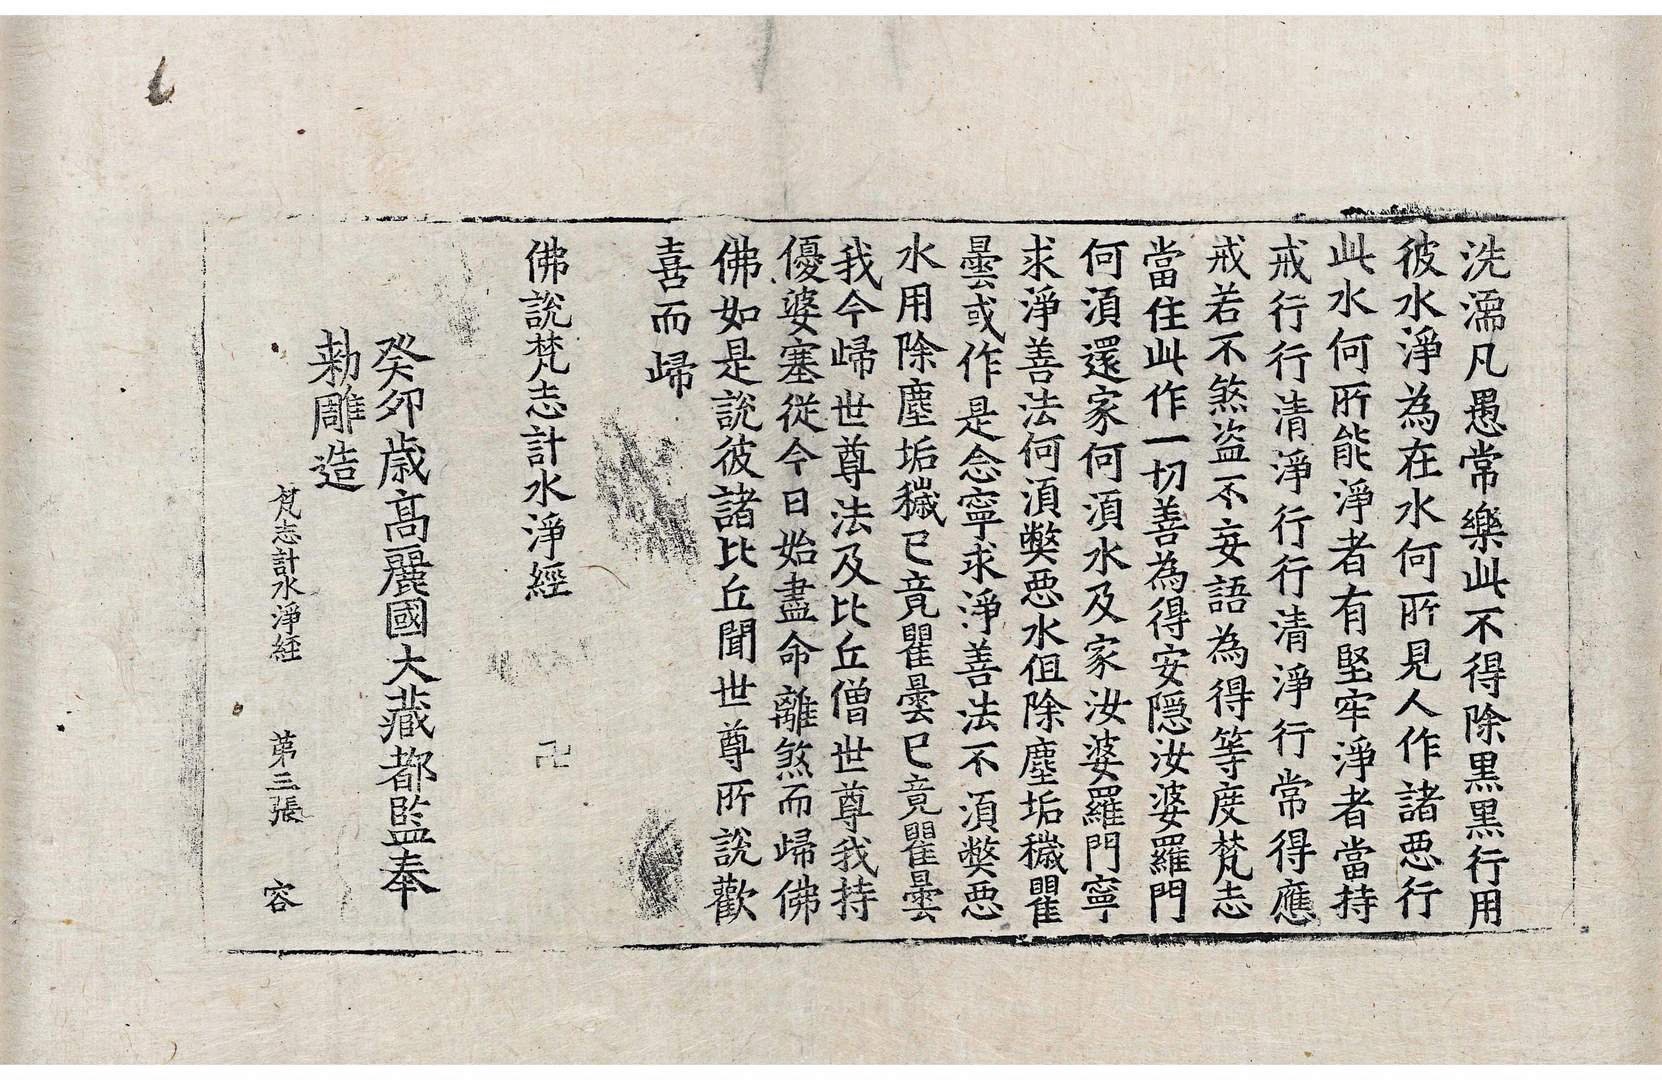 洗濡凡愚常樂此不得除黒黒行用
彼水淨為在水何所見人作諸惡行
此水何所能淨者有堅牢淨者當持
戒行行清淨行行清淨行常得應
戒若不煞盜不妄語為得等度梵志
當住此作一切善為得安隱汝婆羅門
何湏還家何湏水及家汝婆羅門寧
求淨善法何湏弊惡水但除塵垢穢瞿
曇或作是念寧求淨善法不湏弊惡
水用除塵垢穢已竟瞿曇已竟瞿曇
我今歸世尊法及比丘僧世尊我持
優婆塞從今日始盡命離煞而歸佛
佛如是說彼諸比丘聞世尊所說歡
喜而歸
佛說梵志計水淨經 卍
癸卯歲高麗國大藏都監奉
勅雕造
梵志計水淨経 第三張 容